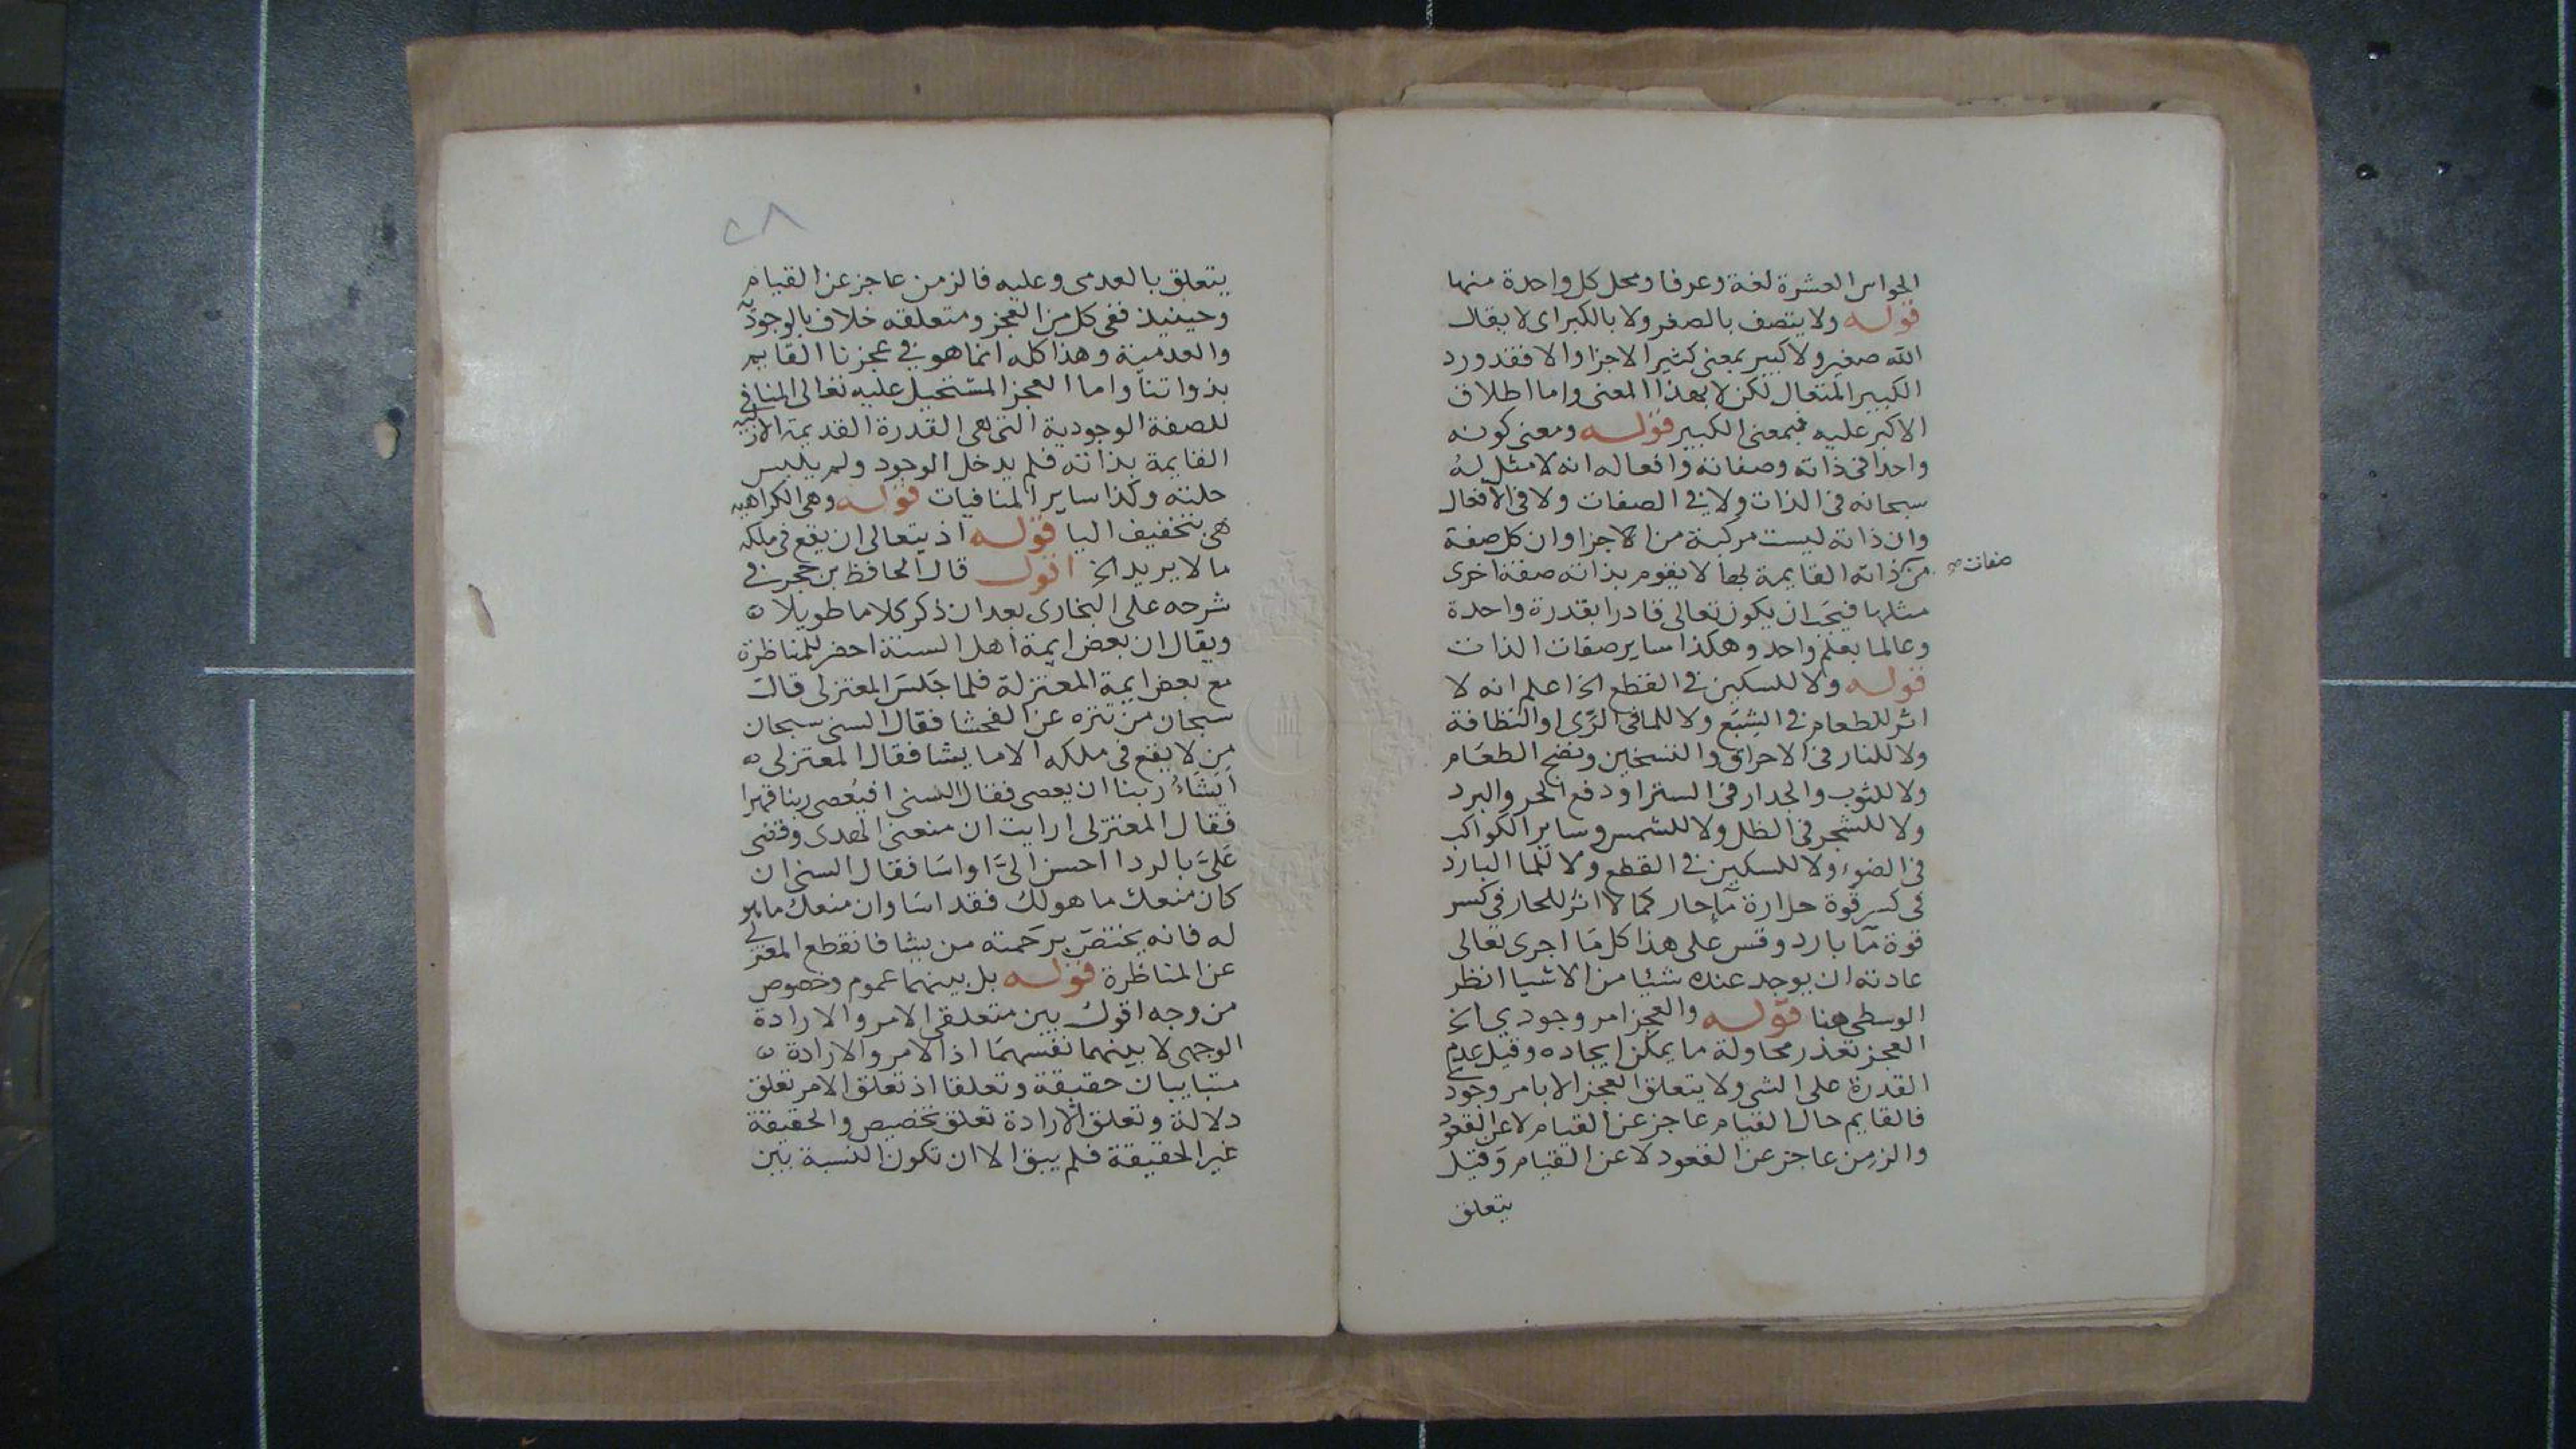 الحواس العشرة لغة وعرفا ومحل كل واحدة منها
قوله ولا يتصف بالصغر ولا بالكبر اى لا يقال
الله صغير ولا كبير بمعنى كثير الاجزا والا فقد ورد
الكبير المتعال لكن لا بهذا المعنى واما اطلاق
الاكبر عليه فبمعنى الكبير قوله ومعنى كونه
واحدا فى ذاته وصفاته وافعاله انه لا مثل له
سبحانه فى الذات ولا فى الصفات ولا فى الافعال
وان ذاته ليست مركبة من الاجزا وان كل صفة
من ذاته القايمة بها لا يقوم بذاته صفة اخرى
صفات صح
مثلها فيجب ان يكون تعالى قادرا بقدرة واحدة
وعالما بعلم واحد وهكذا ساير صفات الذات
قوله ولا للسكين فى القطع الخ اعلم انه لا
اثر للطعام فى الشِبَع ولا للما فى الرّى او النظافة
ولا للنار فى الاحراق والتسخين ونضج الطعام
ولا للثوب والجدار فى الستر او دفع الحر والبرد
ولا للشجر فى الظل ولا للشمس وساير الكواكب
فى الضوء ولا للسكين فى القطع ولا للما البارد
فى كسر قوة حرارة مآحار كما لا اثر للحار فى كسر
قوة مآ بارد وقس على هذا كل ما اجرى تعالى
عادته ان يوجد عنده شئيا من الاشيا انظر
الوسطى هنا قوله والعجز امر وجودي الخ
العجز تعذر محاولة ما يمكن ايجاده وقيل عدم
القدرة على الشى ولا يتعلق العجز الا بامر وجودى
فالقايم حال القيام عاجز عن القيام لا عن القعود
والزمن عاجز عن القعود لا عن القيام وقيل
يتعلق
٢٨
يتعلق بالعدمى وعليه فالزمن عاجز عن القيام
وحينيذ ففى كل من العجز ومتعلقه خلاف بالوجودية
والعدمية وهذا كله انما هو فى عجزنا القايم
بذواتنا واما العجز المستحيل عليه تعالى المنافى
للصفة الوجودية التى هى القدرة القديمة الازلية
القايمة بذاته فلم يدخل الوجود ولم يلبس
حلته وكذا ساير المنافيات قوله وهى الكراهيه
هى بتخفيف اليا قوله اذ يتعالى ان يقع فى ملكه
ما لا يريد الخ اقول قال الحافظ بن حجر فى
شرحه على البخارى بعد ان ذكر كلاما طويلا
ويقال ان بعض ايمة اهل السنة احضر للمناظرة
مع بعض ايمة المعتزلة فلما جَلسَ المعتزلى قال
سبحان من تنزه عن الفحشا فقال السنى سبحان
من لا يقع فى ملكه الا ما يشا فقال المعتزلى
أيَشَاءُ ربنا ان يعصى فقال السنى افيُعصى ربنا قهرا
فقال المعتزلى ارايت ان منعنى الهدى وقضى
عَلىَّ بالردا احسن الىَّ او اسَا فقال السنى ان
كان منعك ما هو لك فقد اسَا وان منعك ما هو
له فانه يختصّ برَحمته من يشا فانقطع المعتزلى
عن المناظرة قوله بل بينهما عموم وخصوص
من وجه اقول بين متعلقى الامر والارادة
الوجهى لا بينهما نفسهما اذ الامر والارادة
متباينان حقيقة وتعلقا اذ تعلق الامر تعلق
دلالة وتعلق الارادة تعلق تخصيص والحقيقة
غير الحقيقة فلم يبق الا ان تكون النسبة بين